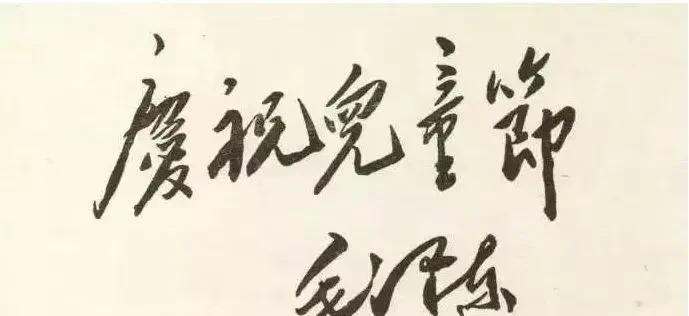 慶祝兒童節
毛澤东